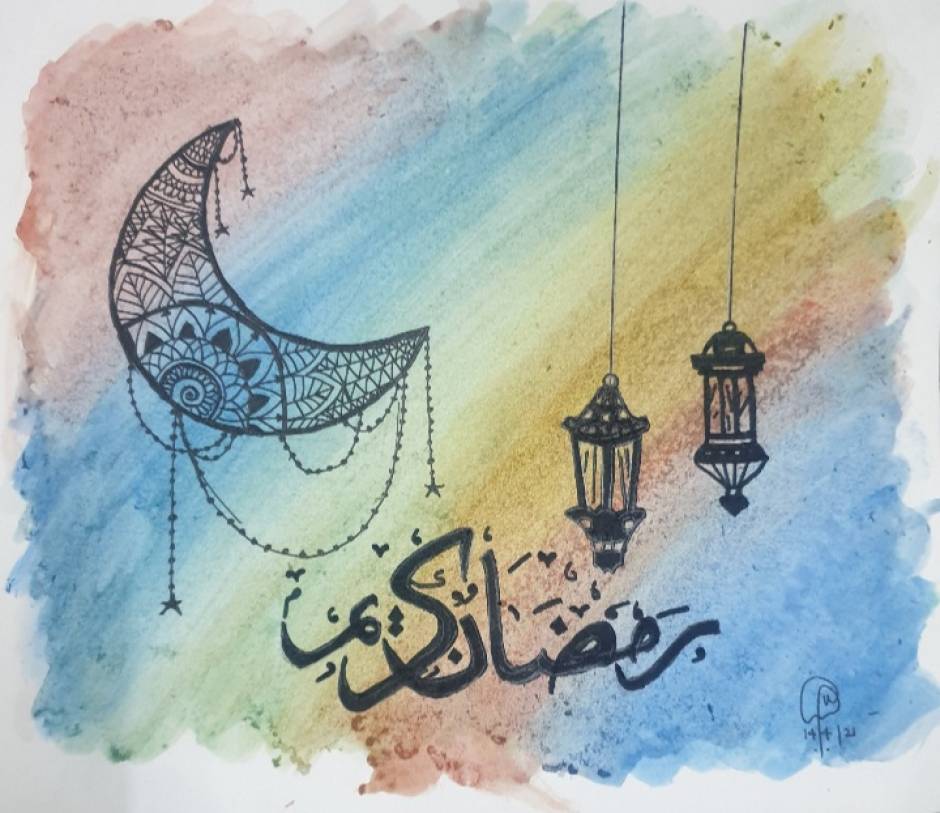 رمضان كريم
14/4/21